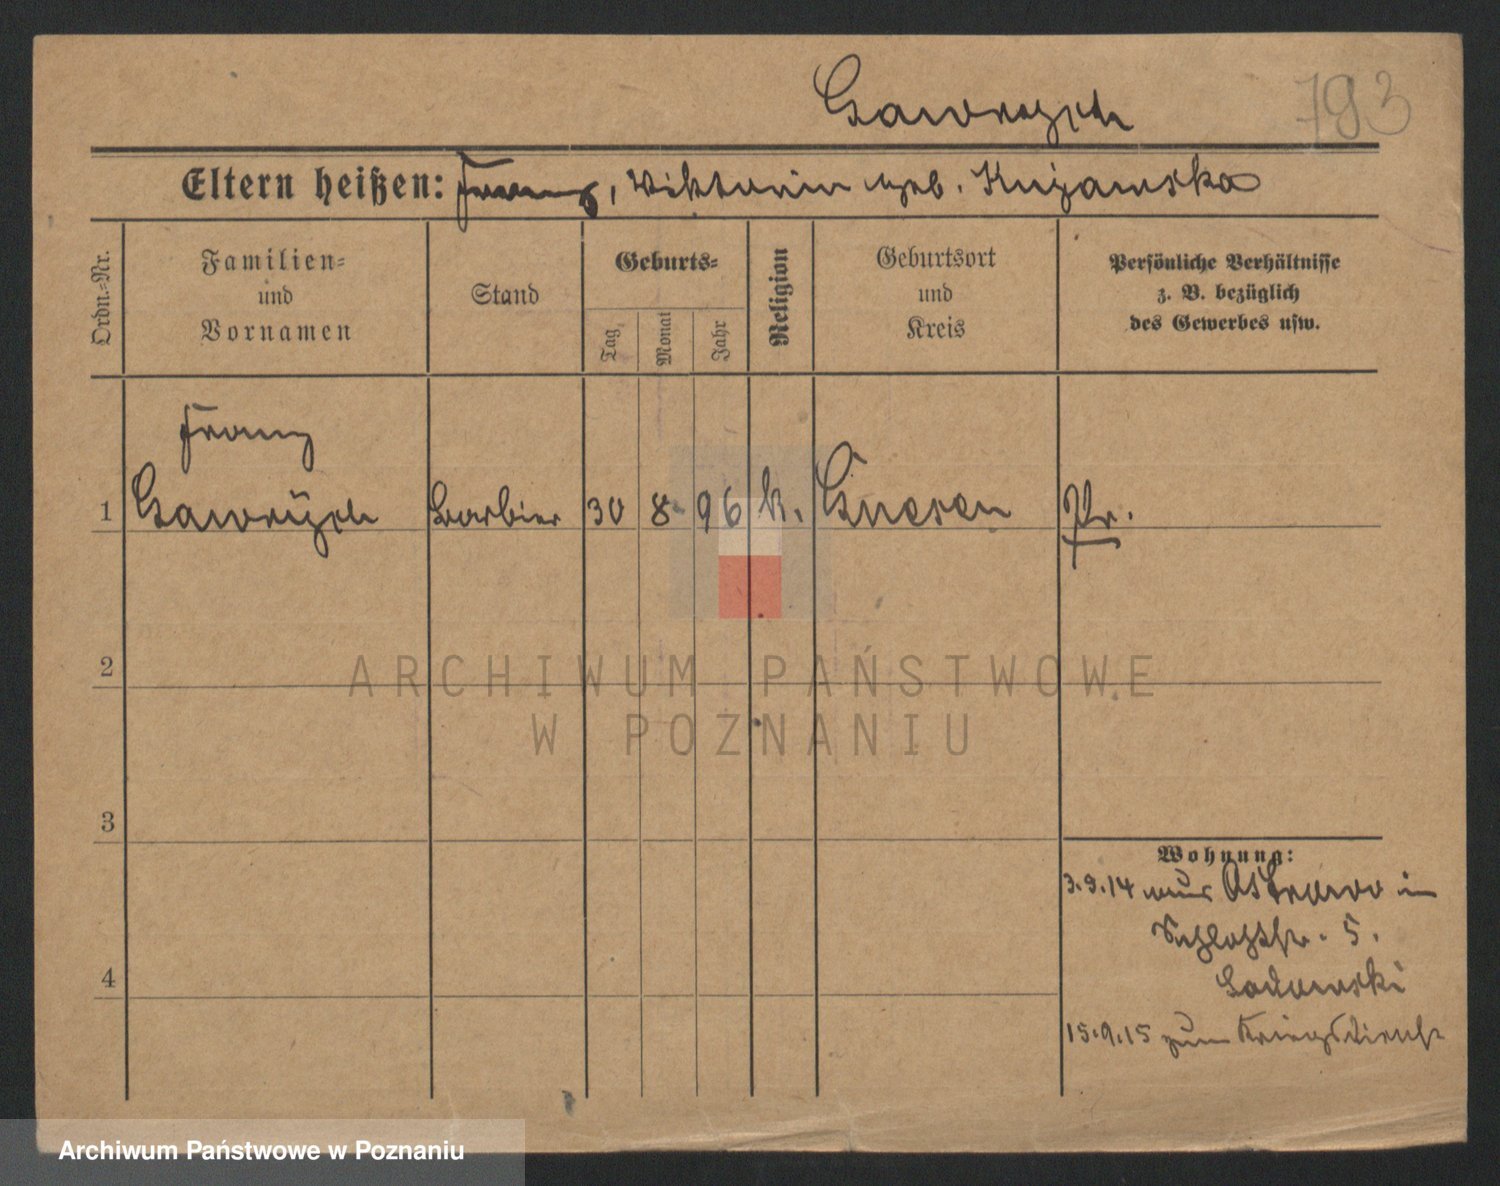 793
Eltern heißen: Franz, Viktoria geb. Kujawska
Ordn.-Nr.
Familien-
und
Vornamen
Stand
Geburts-
Tag
Monat
Jahr
Religion
Geburtsort
und
Kreis
Persönliche Verhältnisse
z. B. bezüglich
des Gewerbes usw.
Franz
1 Barbier 30 8 96 k. Gnesen Pr.
2
3
4
Wohnung:
3.9.14 aus Ostrowo in
Schloßstr. 5.
15.9.15 zum Kriegsdienst
ARCHIWUM PAŃSTWOWE
W POZNANIU
Archiwum Państwowe w Poznaniu